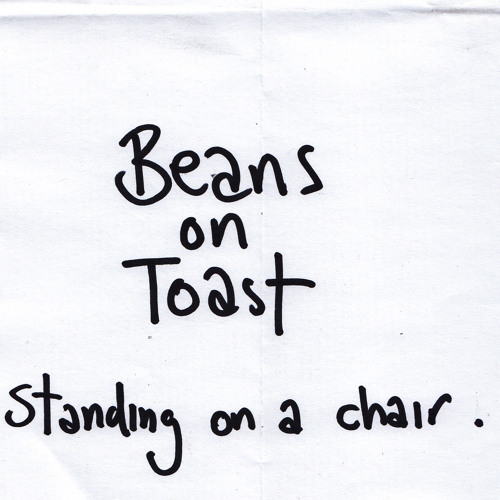 Beans
on
Toast
Standing on a chair.